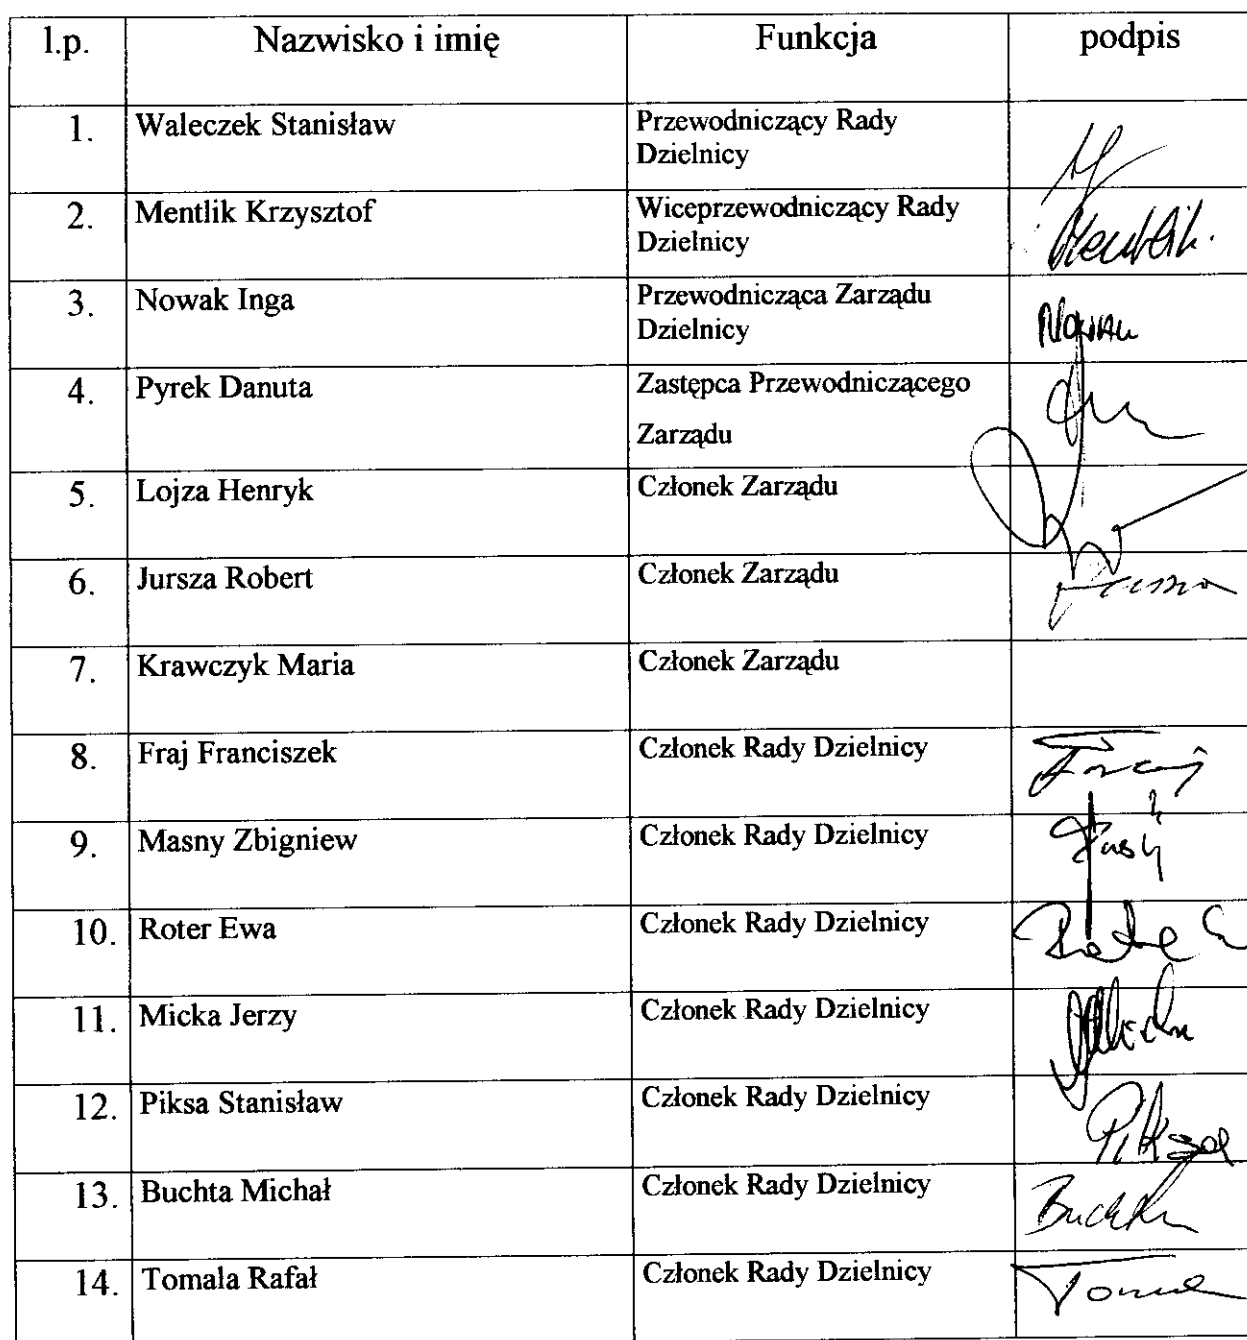 l.p. Nazwisko i imię Funkcja podpis
1. Waleczek Stanisław Przewodniczący Rady
Dzielnicy
2. Mentlik Krzysztof Wiceprzewodniczący Rady
Dzielnicy Mentlik.
3. Nowak Inga Przewodnicząca Zarządu
Dzielnicy Nowak
4. Pyrek Danuta Zastępca Przewodniczącego
Zarządu
5. Lojza Henryk Członek Zarządu
6. Jursza Robert Członek Zarządu
7. Krawczyk Maria Członek Zarządu
8. Fraj Franciszek Członek Rady Dzielnicy Fraj
9. Masny Zbigniew Członek Rady Dzielnicy
10. Roter Ewa Członek Rady Dzielnicy
11. Micka Jerzy Członek Rady Dzielnicy
12. Piksa Stanisław Członek Rady Dzielnicy Piksa
13. Buchta Michał Członek Rady Dzielnicy Buchta
14. Tomala Rafał Członek Rady Dzielnicy